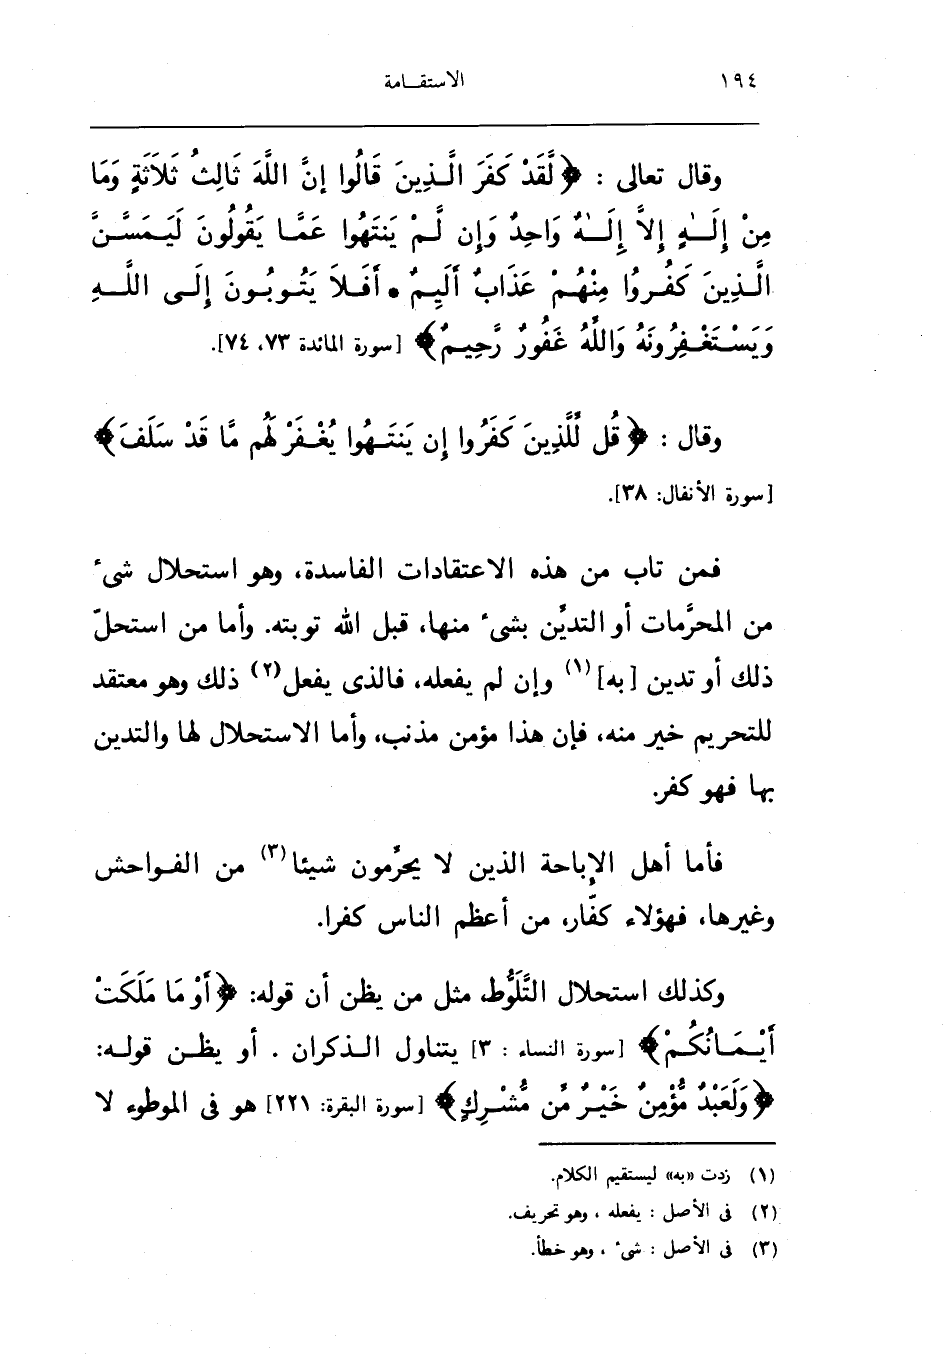 ١٩٤ الاستقـامة
وقال تعالى : ﴿لَّقَدْ كَفَرَ الَّـذِينَ قَالُوا إِنَّ اللَّهَ ثَالِثُ ثَلَاثَةٍ وَمَا
مِنْ إِلَـٰهٍ إِلاَّ إِلَـٰهٌ وَاحِدٌ وَإِن لَّمْ يَنتَهُوا عَمَّـا يَقُولُونَ لَيَمَسَّـنَّ
الَّـذِينَ كَفَـرُوا مِنْهُـمْ عَذَابٌ أَلِيمٌ • أَفَـلاَ يَتُـوبُـونَ إِلَـى اللَّـهِ
وَيَسْـتَغْـفِرُونَهُ وَاللَّهُ غَفُورٌ رَّحِيـمٌ﴾ [سورة المائدة ٧٣، ٧٤].
وقال : ﴿قُل لِّلَّذِينَ كَفَرُوا إِن يَنتَـهُوا يُغْـفَرْ لَهُم مَّا قَدْ سَلَفَ﴾
[سورة الأنفال: ٣٨].
فمن تاب من هذه الاعتقادات الفاسدة، وهو استحلال شىء
من المحرَّمات أو التديُّن بشىء منها، قبل الله توبته. وأما من استحلّ
ذلك أو تدين [به](١) وإن لم يفعله، فالذى يفعل(٢) ذلك وهو معتقد
للتحريم خير منه، فإن هذا مؤمن مذنب، وأما الاستحلال لها والتدين
بها فهو كفر.
فأما أهل الإباحة الذين لا يحرَّمون شيئا(٣) من الفـواحش
وغيرها، فهؤلاء كفّار، من أعظم الناس كفرا.
وكذلك استحلال التَّلَوُّط، مثل من يظن أن قوله: ﴿أَوْ مَا مَلَكَتْ
أَيْـمَـانُكُـمْ﴾ [سورة النساء : ٣] يتناول الـذكران . أو يظـن قولـه:
﴿وَلَعَبْدٌ مُّؤْمِنٌ خَيْـرٌ مِّن مُّشْـرِكٍ﴾ [سورة البقرة: ٢٢١] هو فى الموطوء لا
(١) زدت «به» ليستقيم الكلام.
(٢) فى الأصل : يفعله ، وهو تحريف.
(٣) فى الأصل : شىء ، وهو خطأ.